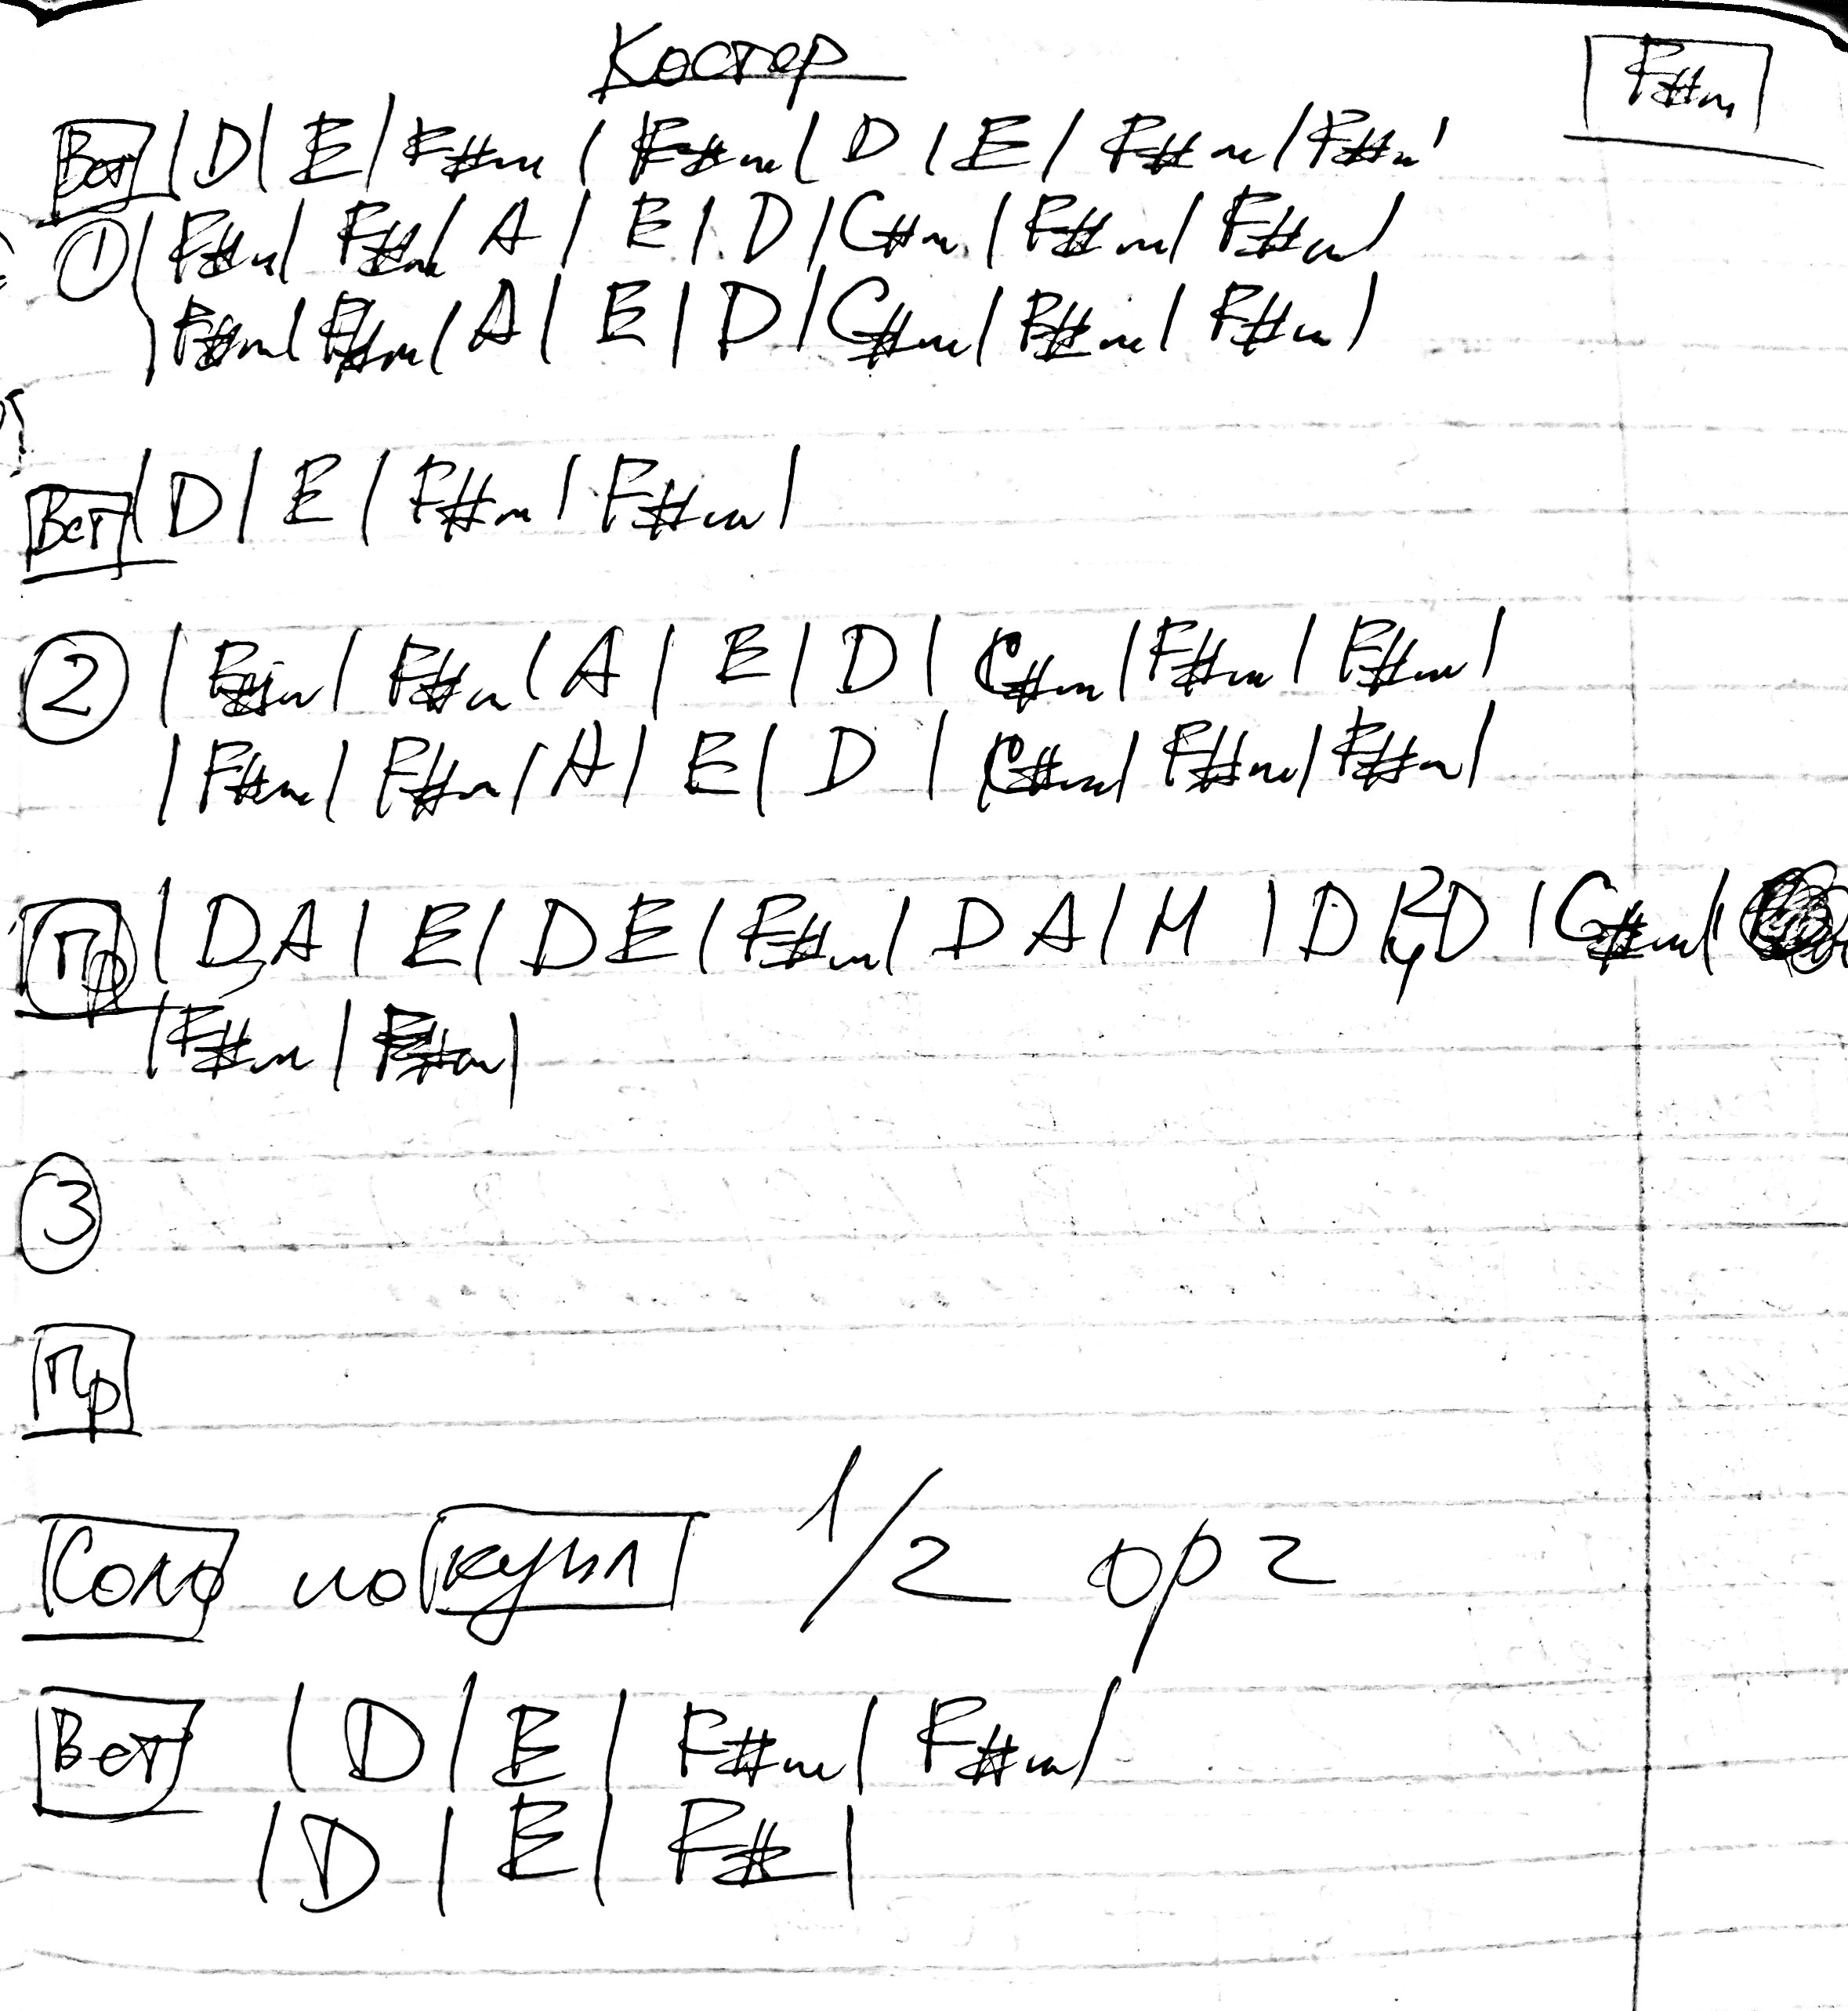 Костер
F#m
Вст | D | E | F#m | F#m | D | E | F#m | F#m |
① | F#m | F#m | A | E | D | C#m | F#m | F#m |
| F#m | F#m | A | E | D | C#m | F#m | F#m |
Вст | D | E | F#m | F#m |
② | F#m | F#m | A | E | D | C#m | F#m | F#m |
| F#m | F#m | A | E | D | C#m | F#m | F#m |
Пр | D A | E | D E | F#m | D A | H | D | D | C#m |
| F#m | F#m |
③
Пр
Соло по купл 1/2
Вст | D | E | F#m | F#m |
| D | E | F# |